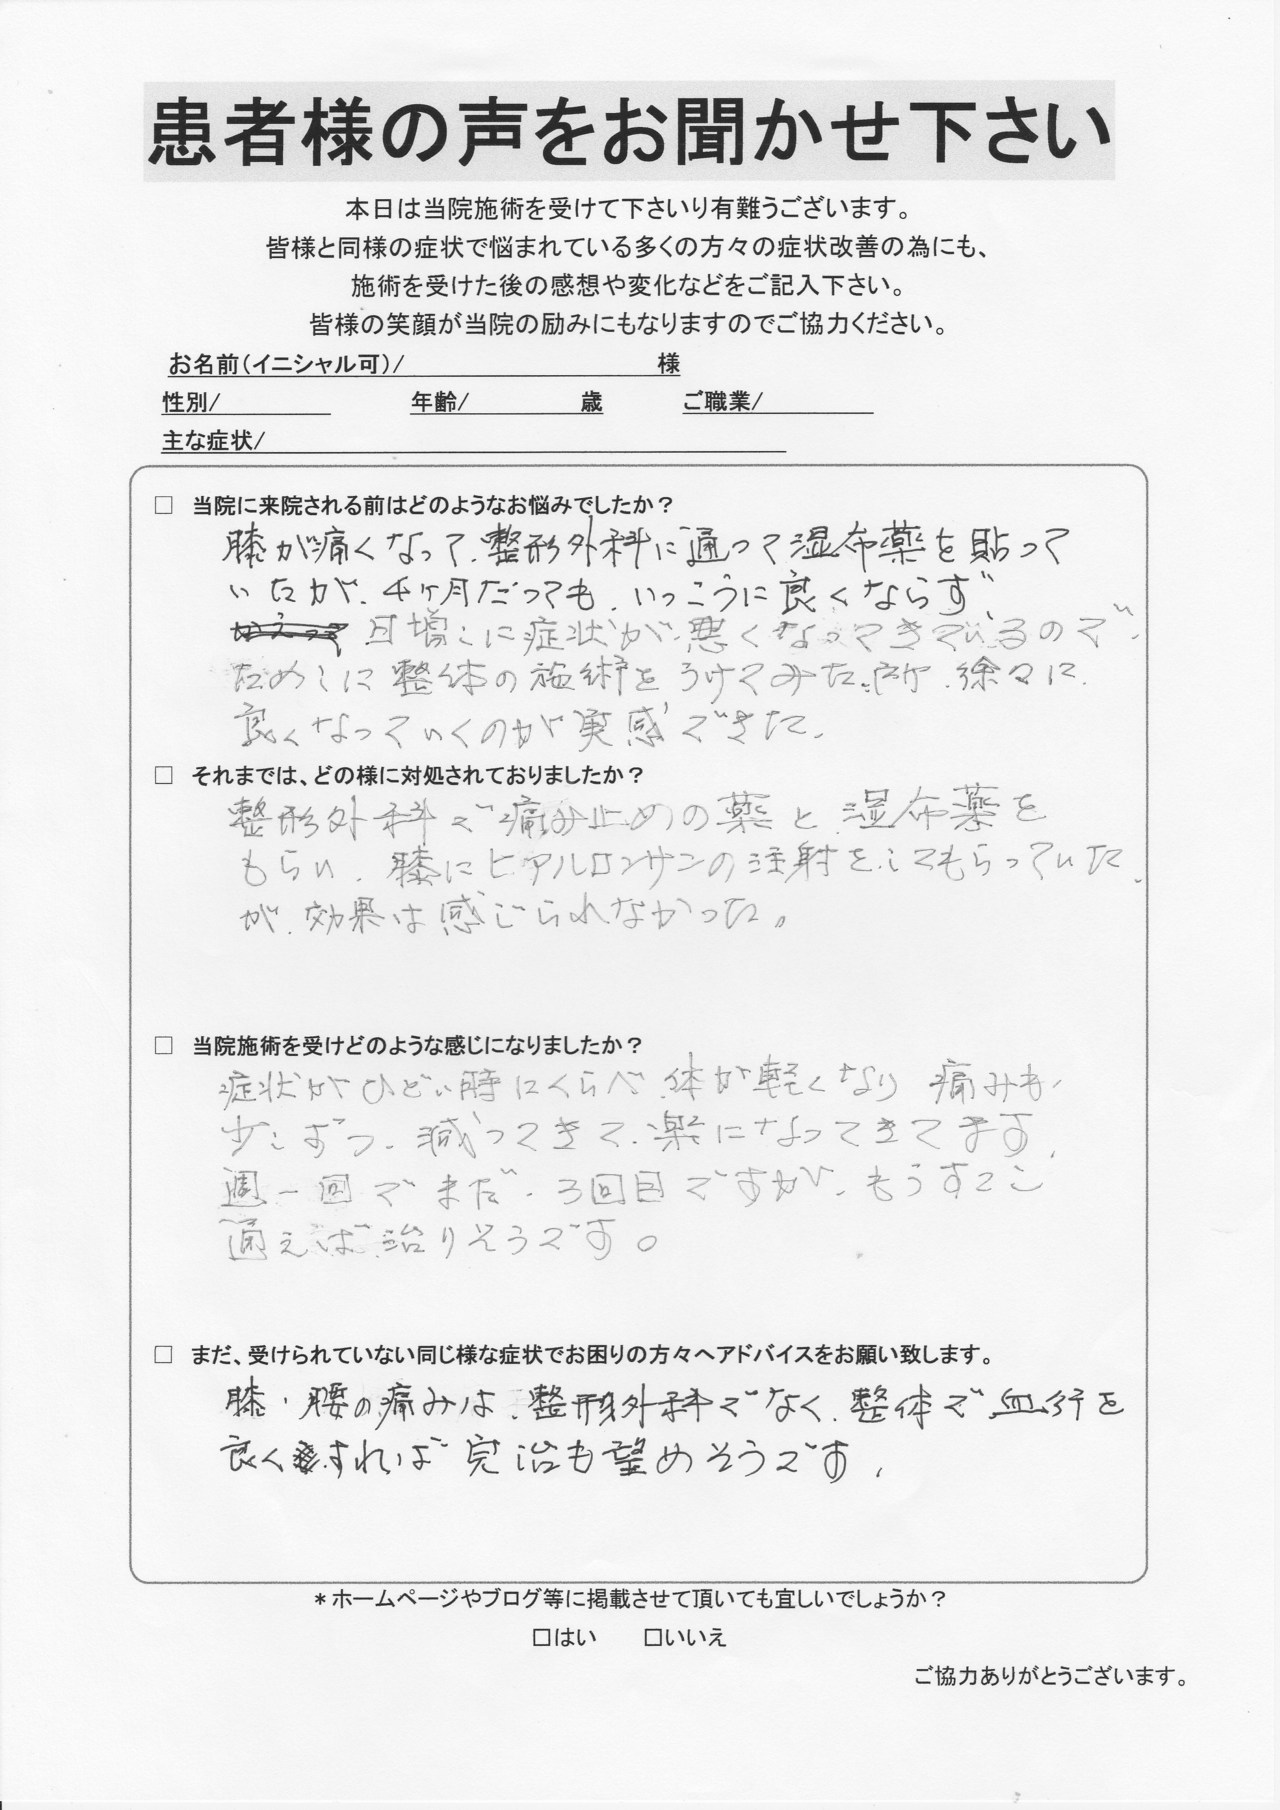 患者様の声をお聞かせ下さい
本日は当院施術を受けて下さいり有難うございます。
皆様と同様の症状で悩まれている多くの方々の症状改善の為にも、
施術を受けた後の感想や変化などをご記入下さい。
皆様の笑顔が当院の励みにもなりますのでご協力ください。
お名前(イニシャル可)/ 様
性別/ 年齢/ 歳 ご職業/
主な症状/
□ 当院に来院される前はどのようなお悩みでしたか?
膝が痛くなって、整形外科に通って湿布薬を貼って
いたが、4ヶ月だっても、いっこうに良くならず、
日増しに症状が悪くなってきているので、
ためしに整体の施術をうけてみた所、徐々に
良くなっていくのが実感できた。
□ それまでは、どの様に対処されておりましたか?
整形外科で痛み止めの薬と湿布薬を
もらい、膝にヒアルロンサンの注射をしてもらっていた
が、効果は感じられなかった。
□ 当院施術を受けどのような感じになりましたか?
症状がひどい時にくらべ、体が軽くなり痛みも、
少しずつ、減ってきて、楽になってきてます、
週一回でまだ、3回目ですが、もうすこし
通えば治りそうです。
□ まだ、受けられていない同じ様な症状でお困りの方々へアドバイスをお願い致します。
膝・腰の痛みは、整形外科でなく、整体で血行を
良くすれば完治も望めそうです、
*ホームページやブログ等に掲載させて頂いても宜しいでしょうか?
□はい □いいえ
ご協力ありがとうございます。